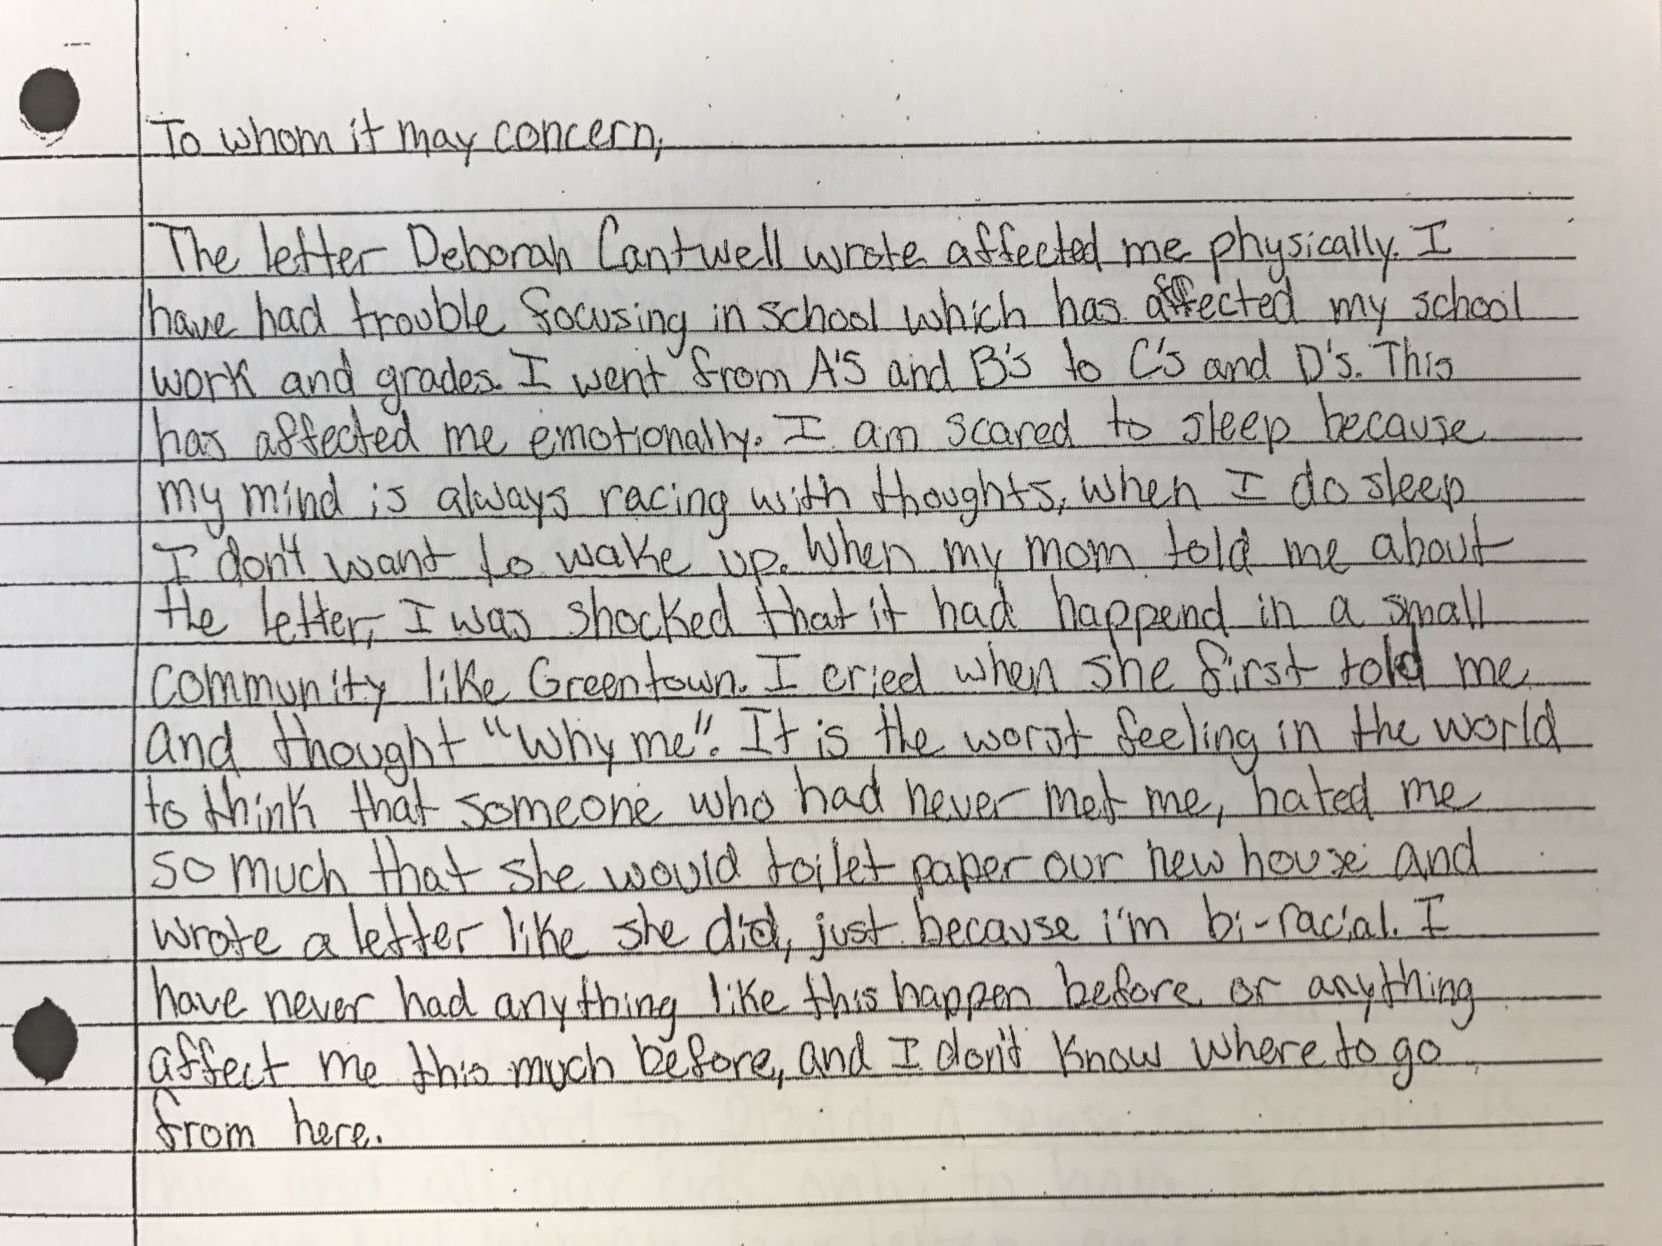 To whom it may concern,
The letter Deborah Cantwell wrote affected me physically. I
have had trouble focusing in school which has affected my school
work and grades. I went from A's and B's to C's and D's. This
has affected me emotionally. I am scared to sleep because
my mind is always racing with thoughts, when I do sleep
I don't want to wake up. When my mom told me about
the letter, I was shocked that it had happend in a small
community like Greentown. I cried when she first told me
and thought "Why me". It is the worst feeling in the world
to think that someone who had never met me, hated me
so much that she would toilet paper our new house and
wrote a letter like she did, just because i'm bi-racial. I
have never had anything like this happen before or anything
affect me this much before, and I don't know where to go
from here.